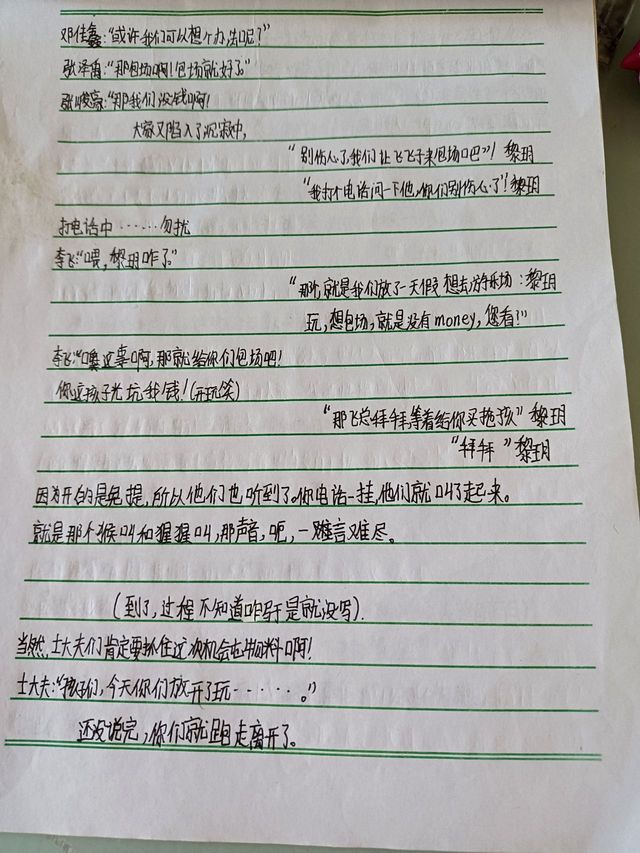 邓佳鑫:“或许我们可以想个办法呢?”
张泽禹:“那包场啊!包场就好了”
张峻豪:“那我们没钱啊!
大家又陷入了沉寂中,
“别伤心了,我们让飞飞子来包场吧”! 黎玥
“我打个电话问一下他,你们别伤心了”! 黎玥
打电话中……勿扰
李飞:“喂,黎玥咋了”
“那先就是我们放了一天假 想去游乐场 : 黎玥
玩,想包场,就是没有money,您看?”
李飞:“噢这事啊,那就给你们包场吧!
你这孩子光坑我钱!(开玩笑)
“那飞总拜拜,等着给你买抢孩” 黎玥
“拜拜” 黎玥
因为开的是免提,所以他们也听到了。你电话一挂,他们就叫了起来。
就是那个猴叫和猩猩叫,那声音,呃,一难言难尽。
(到了,过程不知道咋写于是就没写).
当然,士大夫们肯定要抓住这次机会出物料啊!
士大夫:“孩子们,今天你们放开了玩······。”
还没说完,你们就跑走离开了。